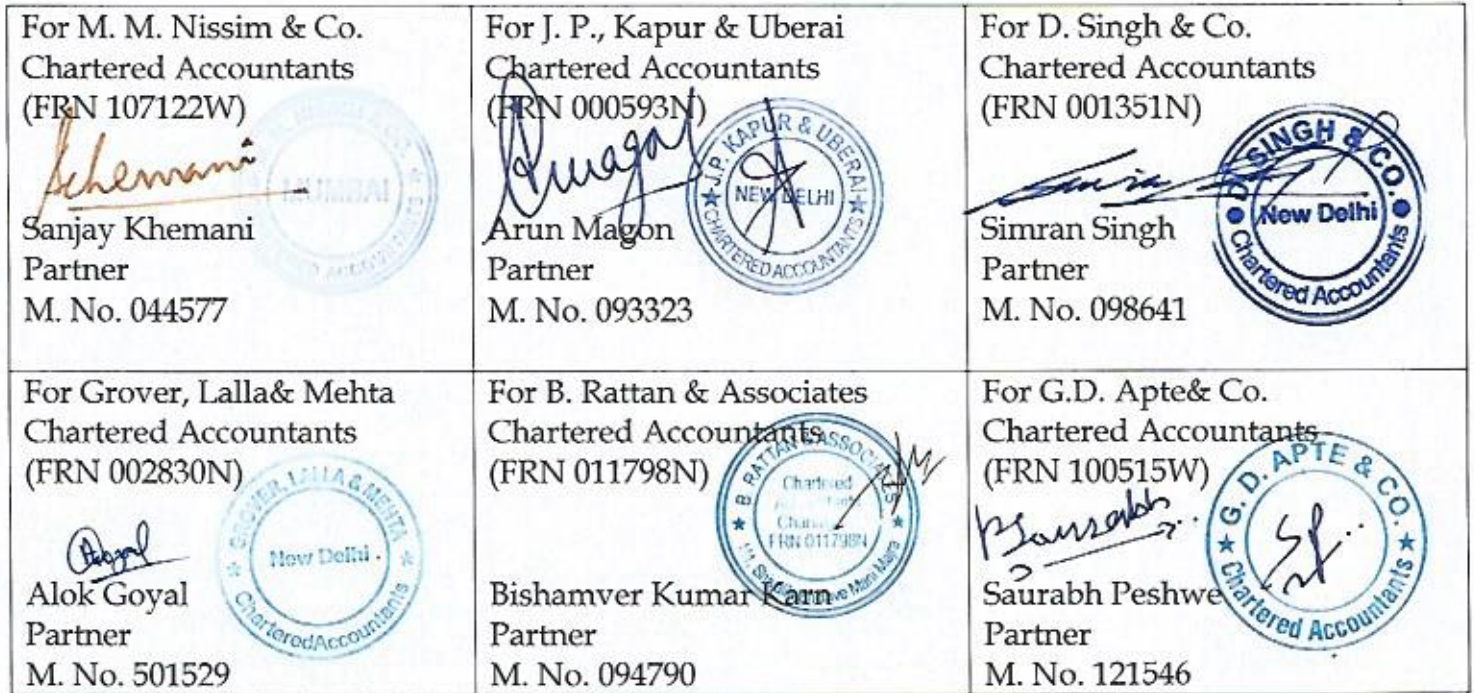 For M. M. Nissim & Co.
Chartered Accountants
(FRN 107122W)
MUMBAI
Sanjay Khemani
Partner
M. No. 044577
For J. P., Kapur & Uberai
Chartered Accountants
(FRN 000593N)
J.P. KAPUR & UBERAI
NEW DELHI
CHARTERED ACCOUNTANTS
Arun Magon
Partner
M. No. 093323
For D. Singh & Co.
Chartered Accountants
(FRN 001351N)
D. SINGH & CO.
New Delhi
Chartered Accountants
Simran Singh
Partner
M. No. 098641
For Grover, Lalla& Mehta
Chartered Accountants
(FRN 002830N)
GROVER, LALLA & MEHTA
New Delhi
Chartered Accountants
Alok Goyal
Partner
M. No. 501529
For B. Rattan & Associates
Chartered Accountants
(FRN 011798N)
B. RATTAN & ASSOCIATES
Chartered
FRN 011798N
Bishamver Kumar Karn
Partner
M. No. 094790
For G.D. Apte& Co.
Chartered Accountants
(FRN 100515W)
G. D. APTE & CO.
Chartered Accountants
Saurabh
Saurabh Peshwe
Partner
M. No. 121546